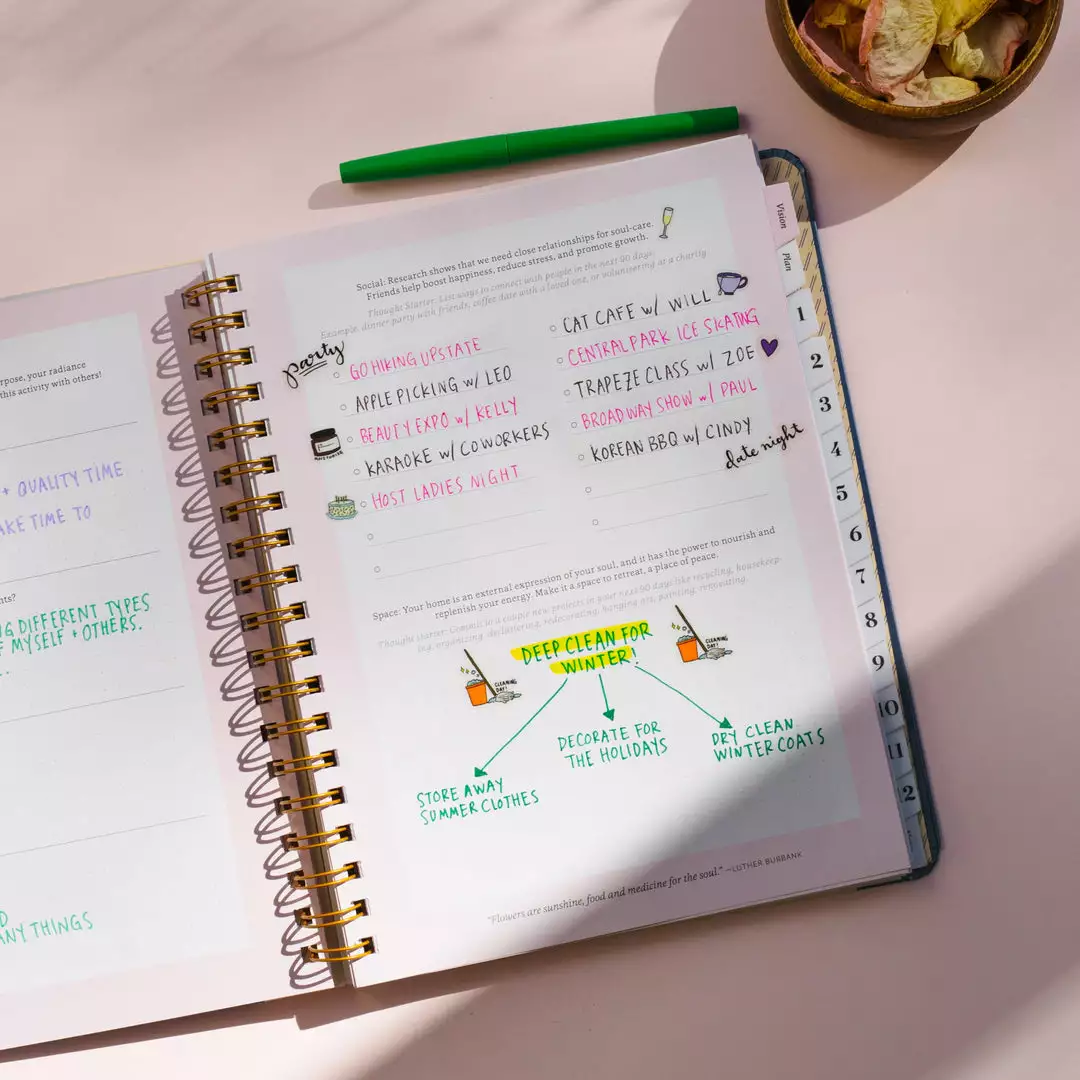 rpose, your radiance
this activity with others!
+ QUALITY TIME
AKE TIME TO
hts?
NG DIFFERENT TYPES
F MYSELF + OTHERS.
D
ANY THINGS
Social: Research shows that we need close relationships for soul-care.
Friends help boost happiness, reduce stress, and promote growth.
Thought Starter: List ways to connect with people in the next 90 days.
Example: dinner party with friends, coffee date with a loved one, or volunteering at a charity
party
GO HIKING UPSTATE
APPLE PICKING w/ LEO
BEAUTY EXPO w/ KELLY
KARAOKE w/ COWORKERS
HOST LADIES NIGHT
CAT CAFE w/ WILL
CENTRAL PARK ICE SKATING
TRAPEZE CLASS w/ ZOE
BROADWAY SHOW w/ PAUL
KOREAN BBQ w/ CINDY
date night
Space: Your home is an external expression of your soul, and it has the power to nourish and
replenish your energy. Make it a space to retreat, a place of peace.
Thought starter: Commit to a couple new projects in your next 90 days like recycling, housekeep
ing, organizing, decluttering, redecorating, hanging art, painting, renovating.
DEEP CLEAN FOR
WINTER!
CLEANING
DAY!
CLEANING
DAY!
STORE AWAY
SUMMER CLOTHES
DECORATE FOR
THE HOLIDAYS
DRY CLEAN
WINTER COATS
"Flowers are sunshine, food and medicine for the soul." –LUTHER BURBANK
Vision
Plan
1
2
3
4
5
6
7
8
9
10
11
2